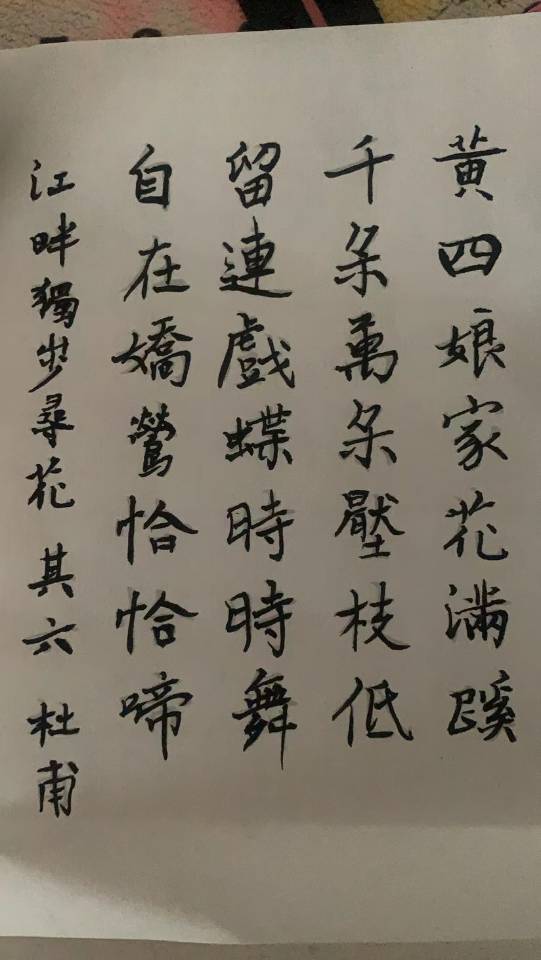 黃四娘家花滿蹊
千朵萬朵壓枝低
留連戲蝶時時舞
自在嬌鶯恰恰啼
江畔獨步尋花 其六 杜甫